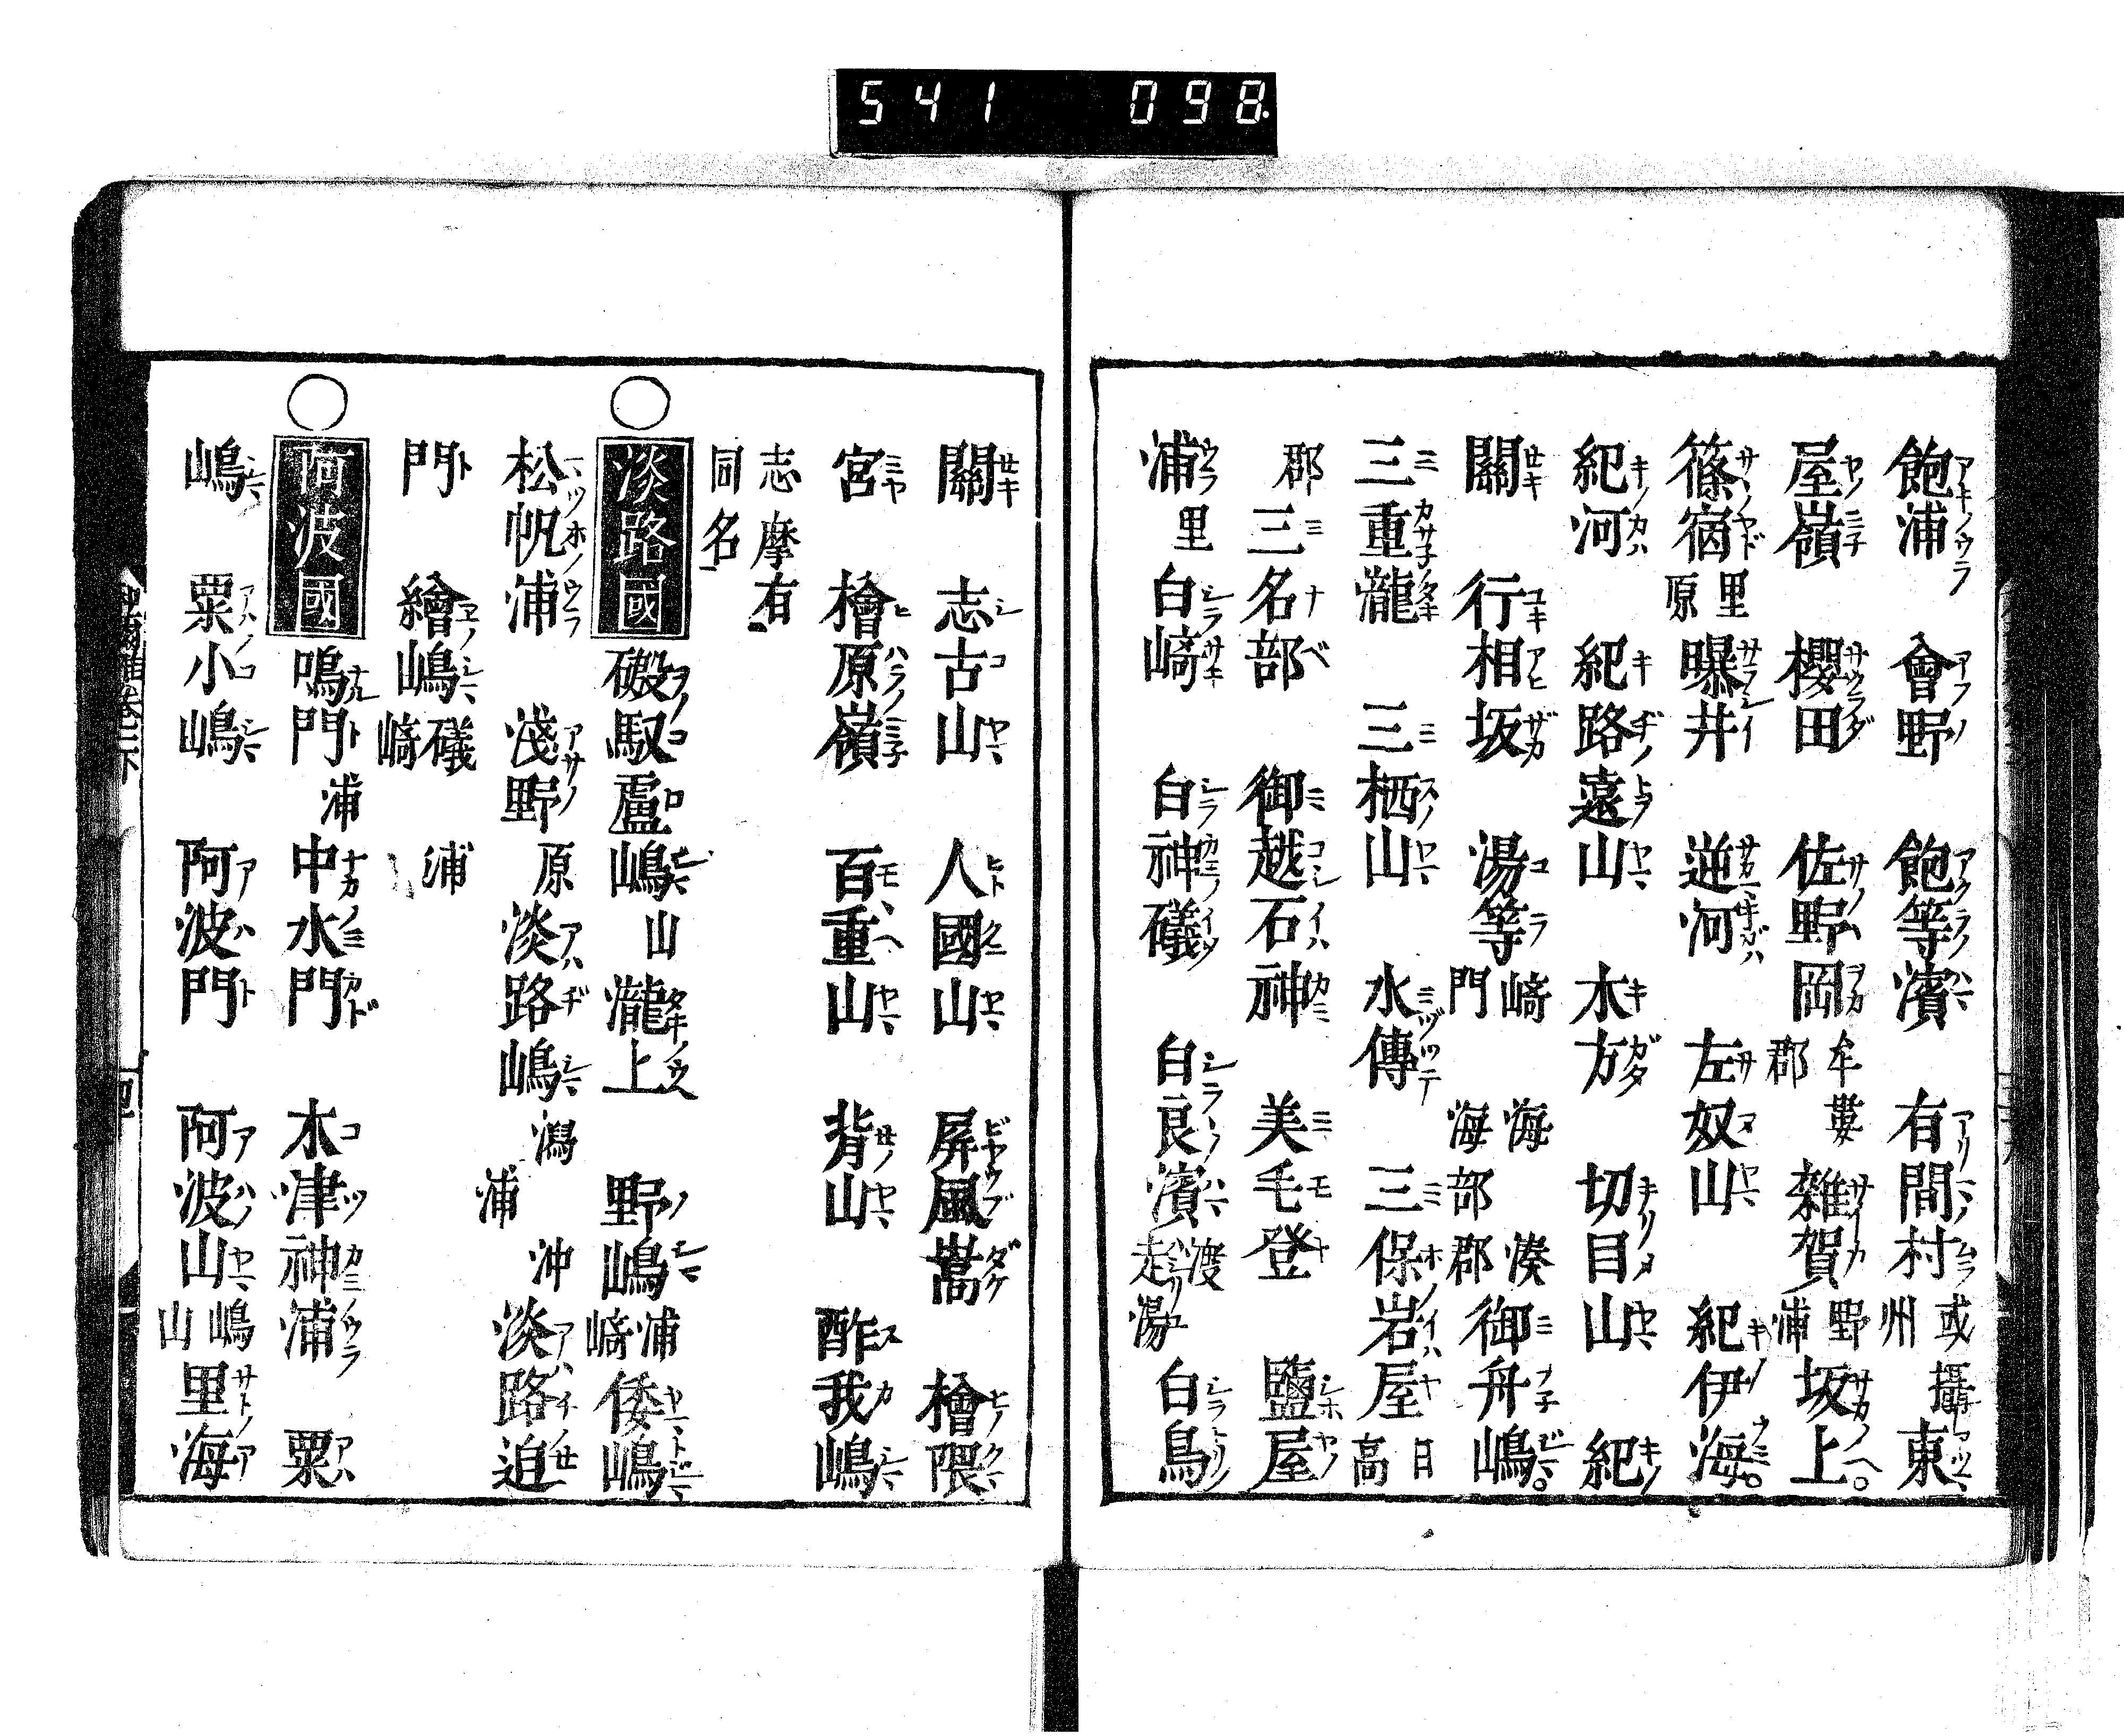 541 098
飽浦 會野 飽等濱 有間村 或攝州 東
屋嶺 櫻田 佐野岡 牟婁郡 雑賀 野浦 坂上
篠宿 里原 曝井 逆河 左奴山 紀伊海
紀河 紀路遠山 木方 切目山 紀
關 行相坂 湯等 崎門 海海部 湊郡 御舟嶋
三重瀧 三栖山 水傳 三保岩屋 日高
郡 三名部 御越石神 美毛登 鹽屋
浦 里 白崎 白神礒 白良濱 渡走湯 白鳥
關 志古山 人國山 屏風嵩 檜隈
宮 檜原嶺 百重山 背山 酢我嶋
志摩有同名
淡路國 磤馭盧嶋 山 瀧上 野嶋 浦崎 倭嶋
松帆浦 淺野 原 淡路嶋 潟浦 沖 淡路迫
門 繪嶋 礒崎 浦
阿波國 鳴門 浦 中水門 木津神浦 粟
嶋 粟小嶋 阿波門 阿波山 嶋山 里海